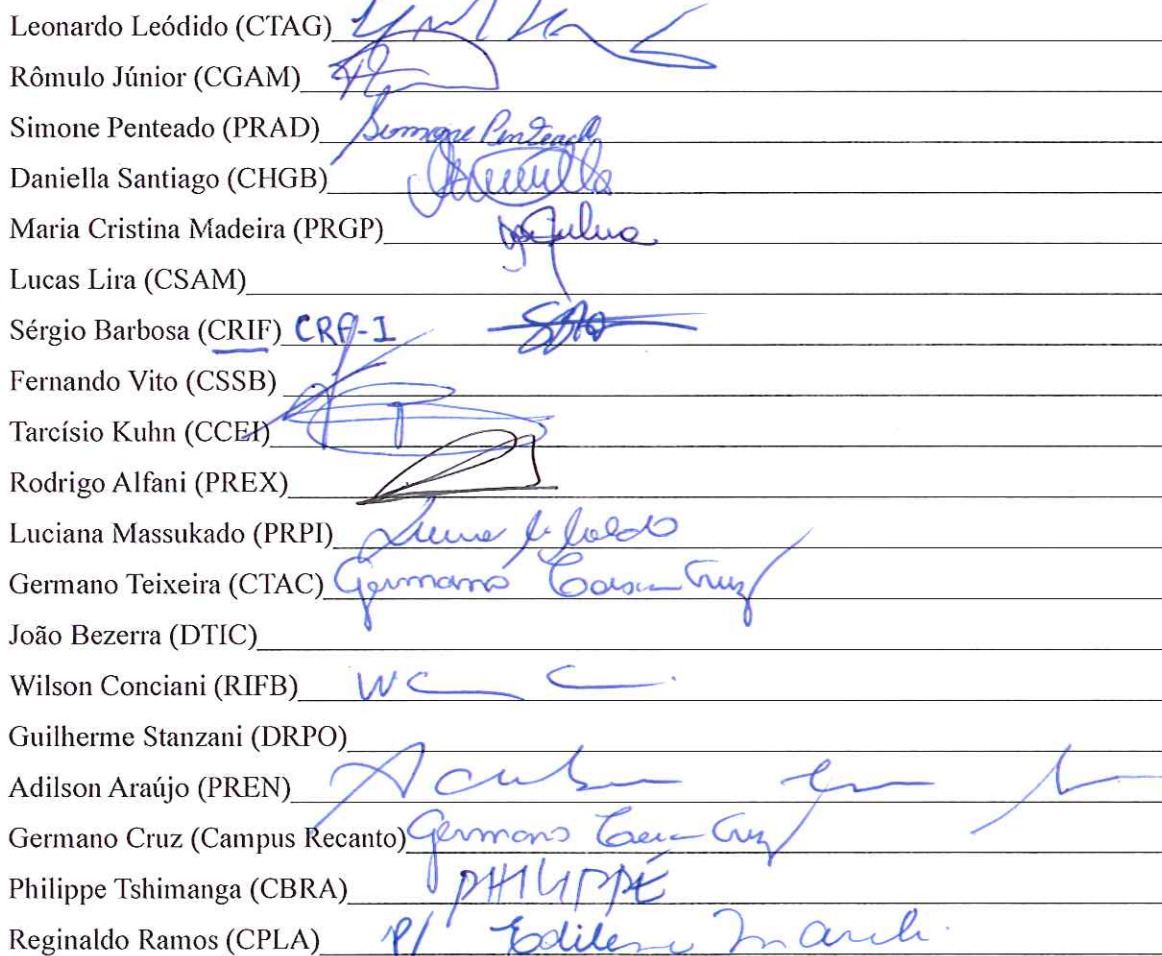 Leonardo Leódido (CTAG)
Rômulo Júnior (CGAM)
Simone Penteado (PRAD) Simone Penteado
Daniella Santiago (CHGB)
Maria Cristina Madeira (PRGP)
Lucas Lira (CSAM)
Sérgio Barbosa (CRIF) CRF-I
Fernando Vito (CSSB)
Tarcísio Kuhn (CCEI)
Rodrigo Alfani (PREX)
Luciana Massukado (PRPI)
Germano Teixeira (CTAC) Germano Cruz
João Bezerra (DTIC)
Wilson Conciani (RIFB) WC
Guilherme Stanzani (DRPO)
Adilson Araújo (PREN)
Germano Cruz (Campus Recanto) Germano Cruz
Philippe Tshimanga (CBRA) PHILIPPE
Reginaldo Ramos (CPLA) P/